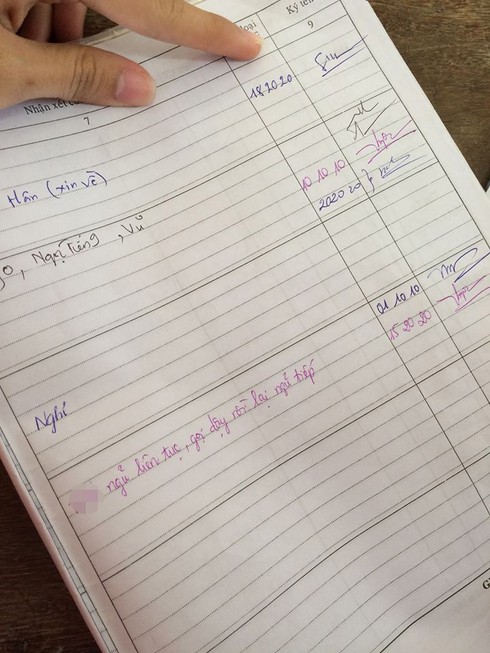 Nhận xét
oại
Ký tên
7
9
18.20.20
Hân (xin về)
10 10 10
2020 20
, Ngọ Tiếng , Vũ
01 10 10
15 20 20
Nghi
ngủ liên tục, gọi dậy rồi lại ngủ tiếp